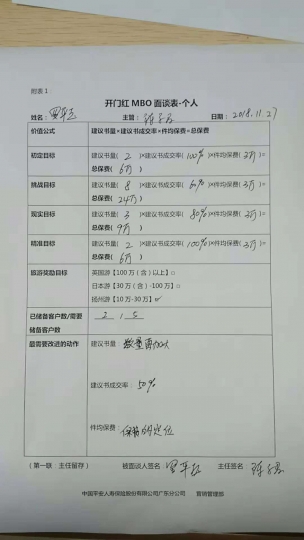 附表1:
开门红 MBO 面谈表-个人
姓名: 主管: 日期: 2018.11.27
价值公式 建议书量×建议书成交率×件均保费=总保费
初定目标 建议书量( 2 )×建议书成交率( 100% )×件均保费( 3万 )=
总保费( 6万 )
挑战目标 建议书量( 8 )×建议书成交率( )×件均保费( 3万 )=
总保费( 24万 )
现实目标 建议书量( 3 )×建议书成交率( 80% )×件均保费( 3万 )=
总保费( 9万 )
精准目标 建议书量( 2 )×建议书成交率( 100% )×件均保费( 3万 )=
总保费( 6万 )
旅游奖励目标 英国游【100万(含)以上】□
日本游【30万(含)-100万】□
扬州游【10万-30万】☑
已储备客户数/需要
储备客户数 2 1 5
最需要改进的动作 建议书量: 数量再加以
建议书成交率: 50%
件均保费:
(第一联:主任留存) 被面谈人签名: 主任签名:
中国平安人寿保险股份有限公司广东分公司 营销管理部